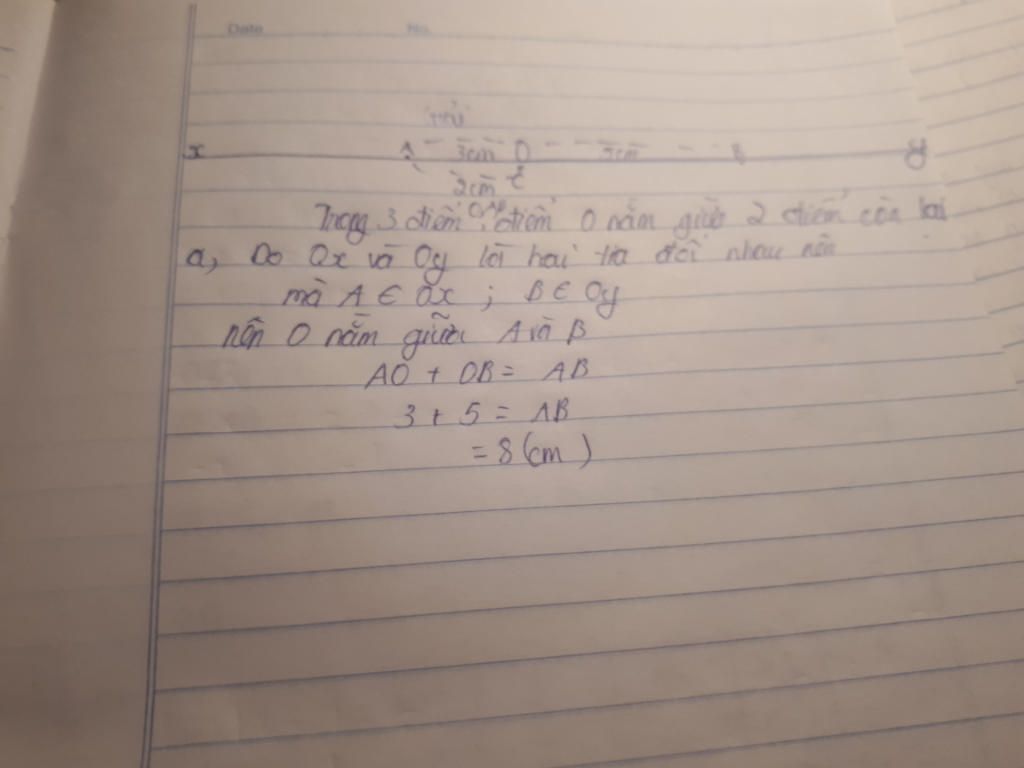 Date No.
x A 3cm O 5cm B y
2cm C
O, A, B
Trong 3 điểm, điểm O nằm giữa 2 điểm còn lại
a, Do Ox và Oy là hai tia đối nhau nên
mà A ∈ Ox ; B ∈ Oy
nên O nằm giữa A và B
AO + OB = AB
3 + 5 = AB
= 8 (cm)